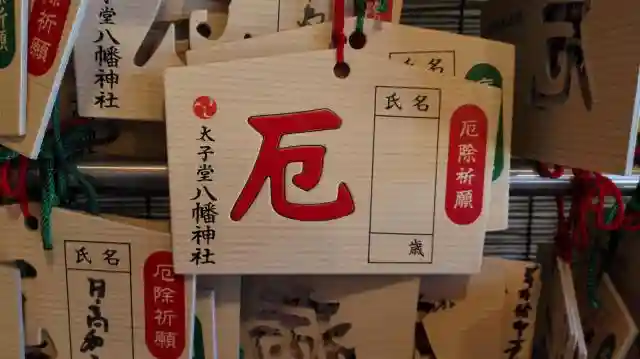 太子堂八幡神社
厄
氏名
歳
厄除祈願
子堂八幡神社
祈願
祈願
氏名
氏名
日高
厄除祈願